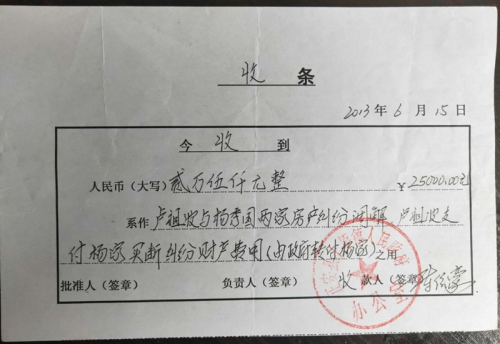 收 条
2013年6月15日
今 收 到
人民币（大写）贰万伍仟元整 ¥25000.00元
系作 卢祖波与杨秀国两家房产纠纷调解 卢祖波支
付杨家买断纠纷财产费用（由政府转付杨家）之用
批准人（签章） 负责人（签章） 收款人（签章）
人民政府
办公室